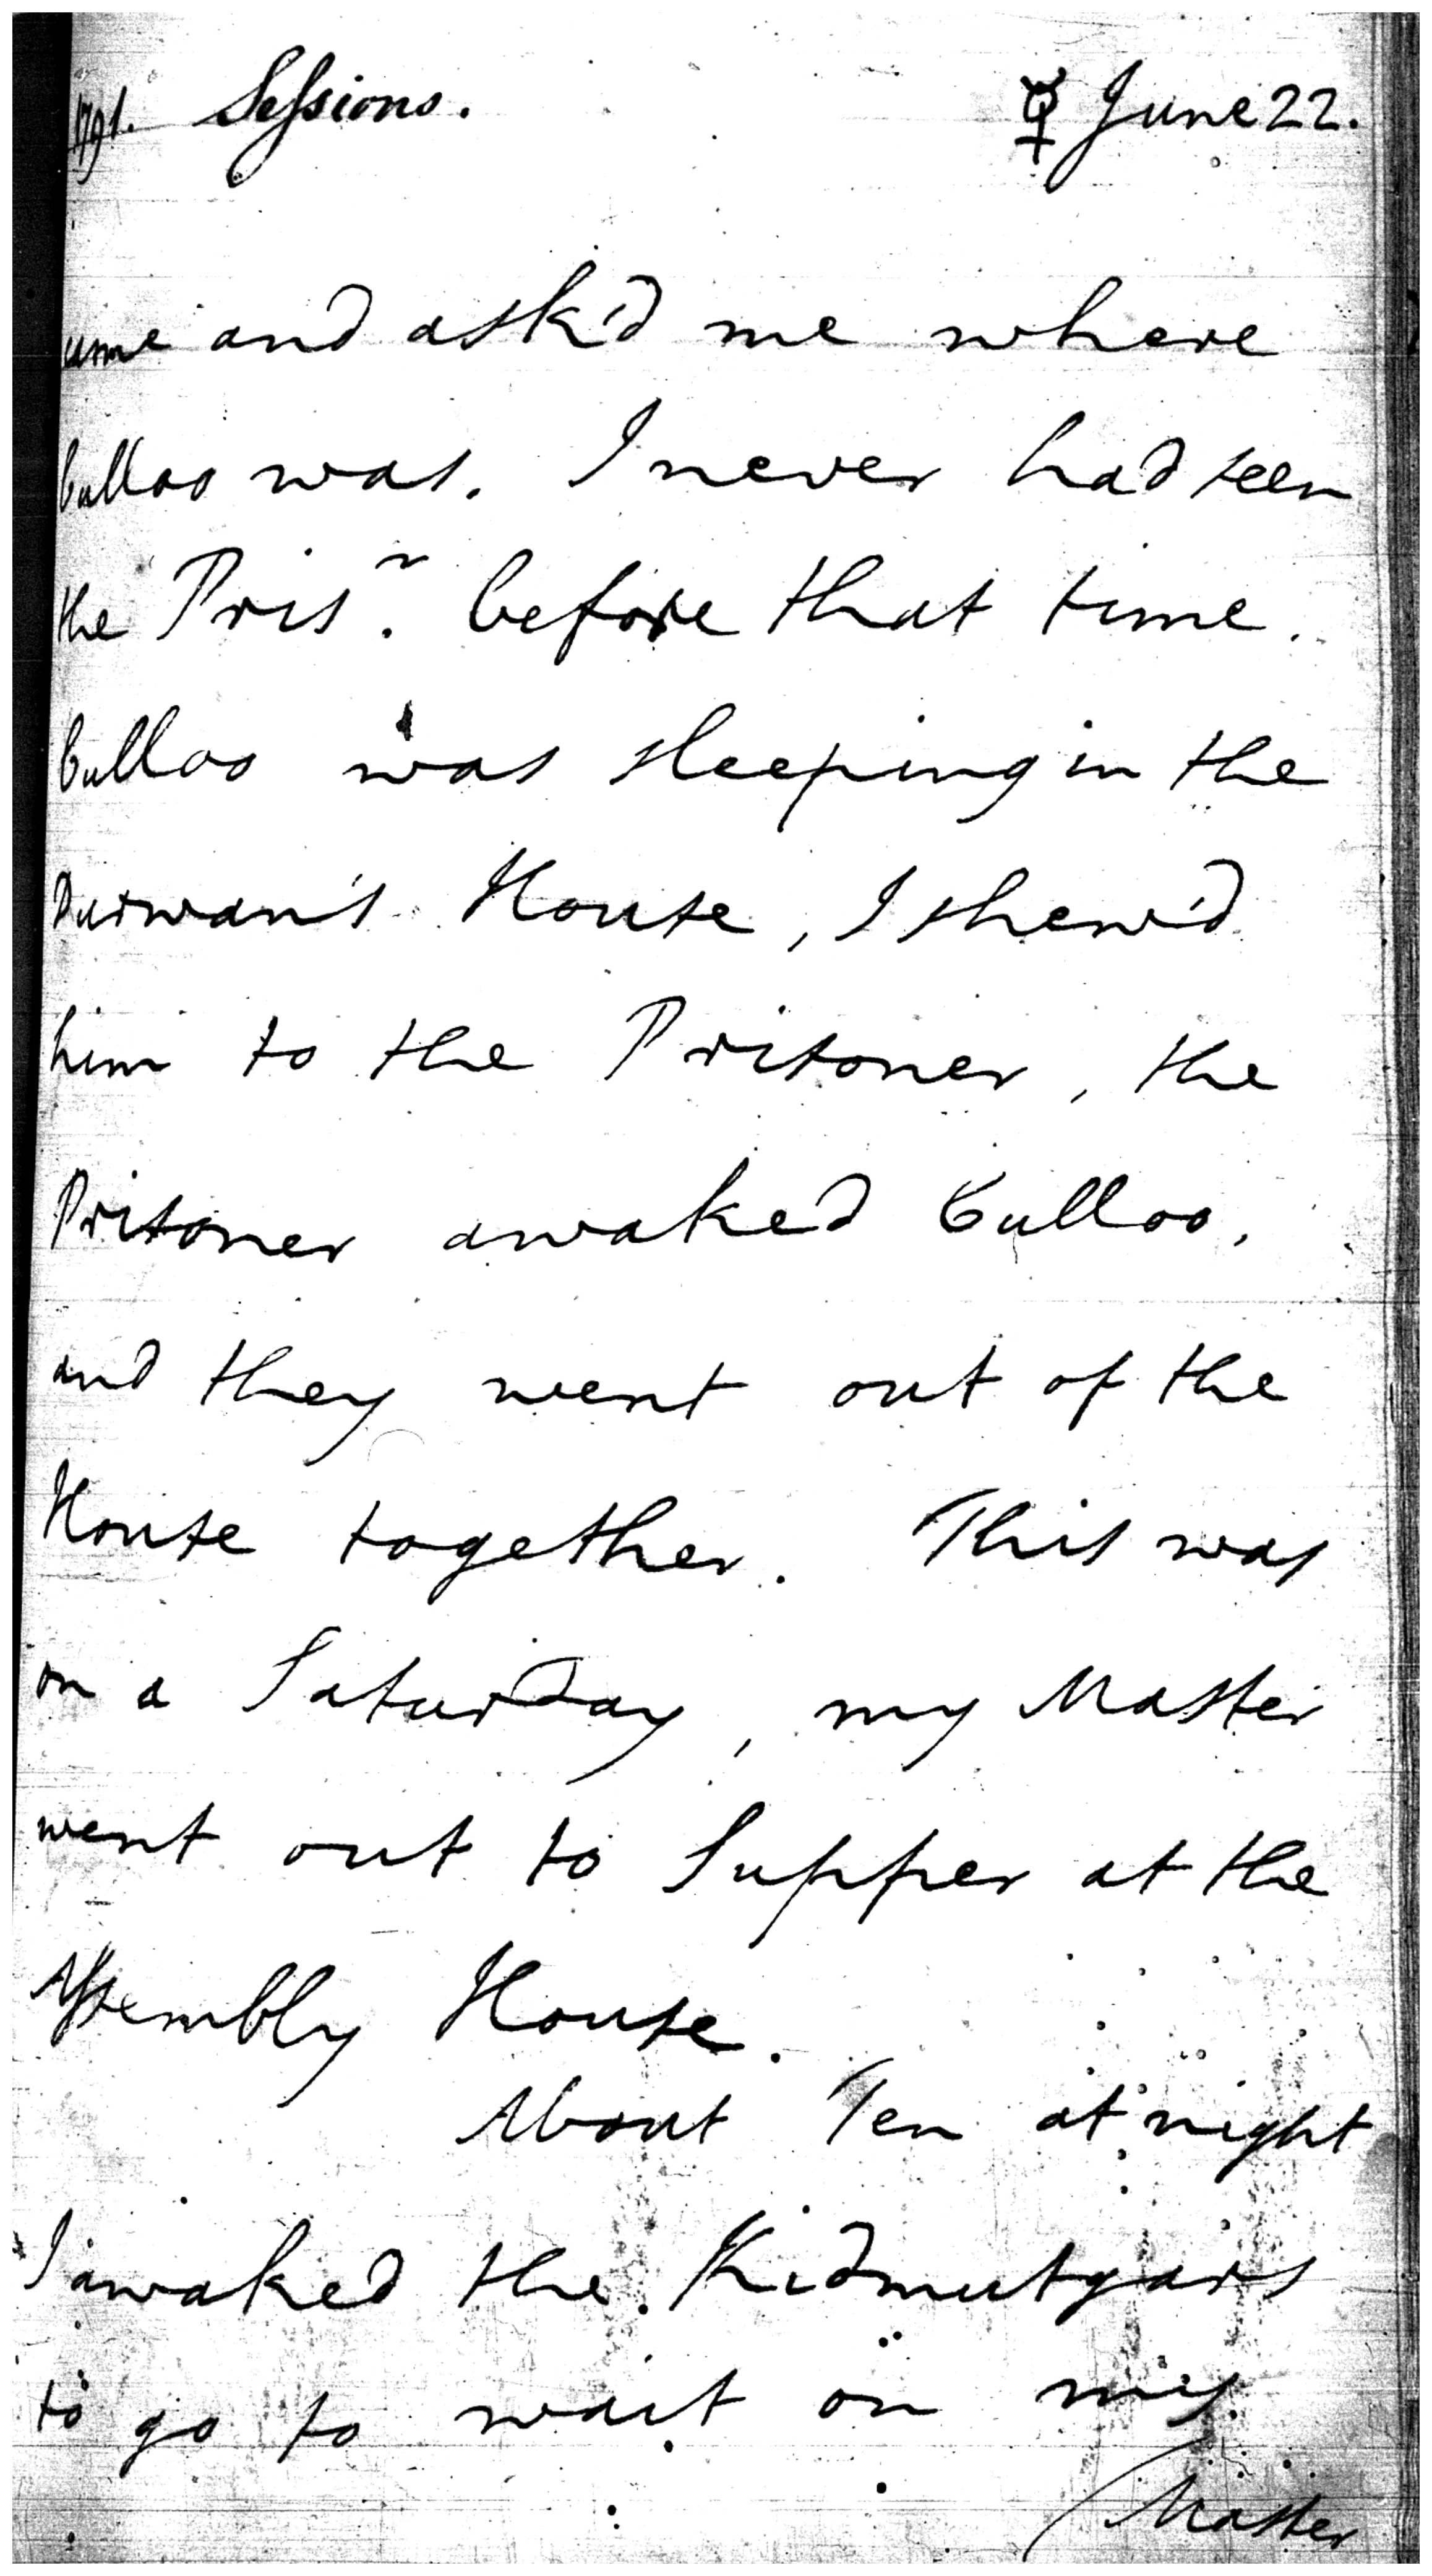 1791. Sessions. ☿ June 22.
came and ask'd me where
Culloo was. I never had seen
the Pris.^r before that time.
Culloo was sleeping in the
Durwan's House, I shew'd
him to the Prisoner, the
Prisoner awaked Culloo,
and they went out of the
House together. This was
on a Saturday, my Master
went out to Supper at the
Assembly House.
About Ten at night
I awaked the Kidmutgars
to go to wait on my
Master